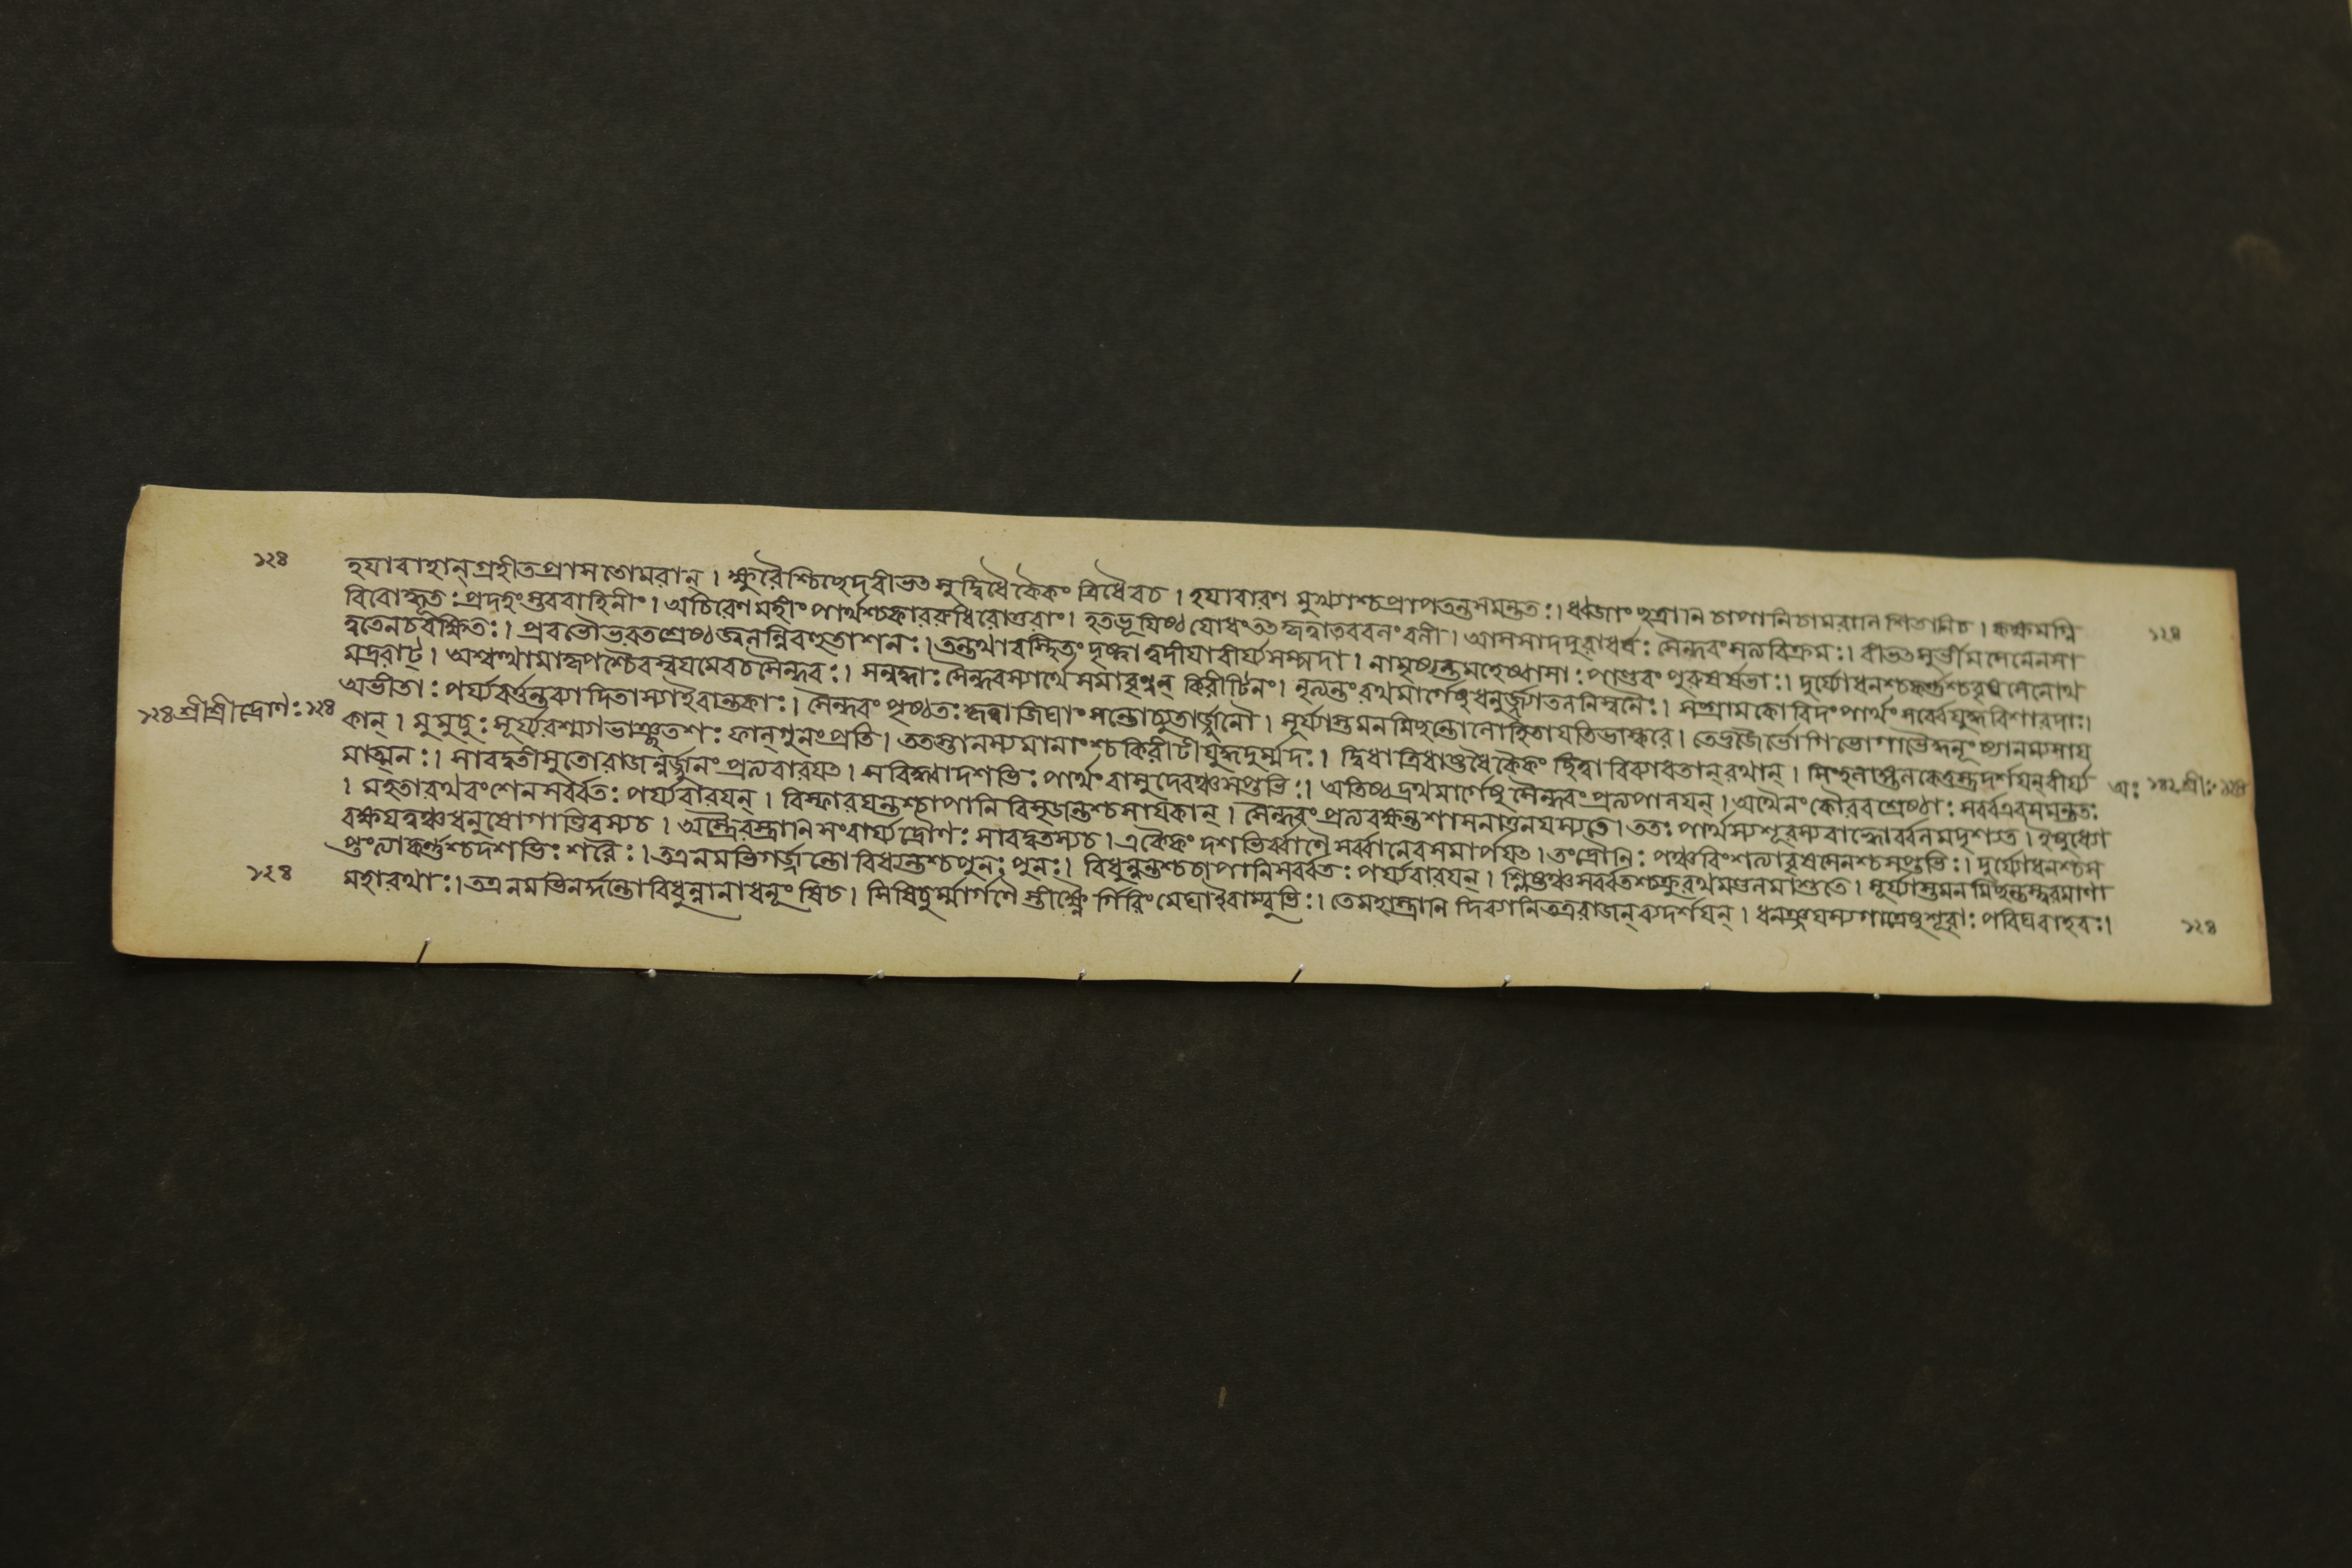 ১২৪
হযাবাহান্গ্রহীতপ্রাসতোমরান্। ক্ষুরৈশ্চিছেদবীভৎসুর্দ্বিধৈকৈকং ত্রিধৈবচ। হযাবারণ মুখ্যাশ্চপ্রাপতন্তসমন্ততঃ। ধ্বজাংছত্রানি চাপানিচামরানি শিতানিচ। কক্ষমগ্নি
১২৪
বিবোদ্ধূতঃপ্রদহংস্তববাহিনীং। অচিরেণমহীং পার্থশ্চকাররুধিরোত্তরাং। হতভূযিষ্ঠ যোধংতৎকৃত্বাতববলংবলী। আসসাদদুরাধর্ষঃ সৈন্ধবংসত্যবিক্রমঃ। বীভৎসুর্ভীমসেনেনসা
ত্বতেনচরক্ষিতঃ। প্রবভৌভরতশ্রেষ্ঠজ্বলন্নিবহুতাশনঃ। তন্তথাবস্থিতং দৃষ্ট্বা ত্বদীযাবীর্য্যসম্পদা। নামৃষ্যন্তমহেষ্বাসাঃ পাণ্ডবং পুরুষর্ষভাঃ। দুর্য্যোধনশ্চকর্ণশ্চবৃষসেনোথ
মদ্ররাট্। অশ্বত্থামাকৃপশ্চৈবস্বযমেবচসৈন্ধবঃ। সন্নদ্ধাঃ সৈন্ধবস্যার্থে সমাবৃণ্বন্ কিরীটিনং। নৃত্যন্তংরথমার্গেষুধনুর্জ্যাতলনিস্বনৈঃ। সংগ্রামকোবিদংপার্থং সর্ব্বেযুদ্ধবিশারদাঃ।
অভীতাঃ পর্য্যবর্ত্তন্তব্যাদিতাস্যাইবান্তকাঃ। সৈন্ধবং পৃষ্ঠতঃকৃত্বাজিঘাংসন্তোচ্যুতার্জ্জুনৌ। সূর্য্যাস্তমনমিছন্তোলোহিতাযতিভাস্করে। তেভুজৈর্ভোগিভোগাভৈর্দ্ধনূংষ্যানম্যসায
১২৪শ্রীশ্রীদ্রোণঃ১২৪
কান্। মুমুচুঃ সূর্য্যরশ্ম্যাভাঞ্ছতশঃ ফাল্গুনংপ্রতি। ততস্তানস্যমানাংশ্চকিরীটীযুদ্ধদুর্ম্মদঃ। দ্বিধাত্রিধাষ্টধৈকৈকং ছিত্বাবিব্যাধতান্রথান্। সিংহলাঙ্গুলকেতুস্তুদর্শযন্বীর্য্য
মাত্মনঃ। সারদ্বতীসুতোরাজন্নর্জ্জুনংপ্রত্যবারযৎ। সবিদ্ধ্বাদশভিঃ পার্থং বাসুদেবঞ্চসপ্তভিঃ। অতিষ্ঠদ্রথমার্গেষু সৈন্ধবংপ্রত্যপালযন্। অথৈনংকৌরবশ্রেষ্ঠাঃ সর্ব্বএবসমন্ততঃ
। মহতারথবংশেনসর্ব্বতঃ পর্য্যবারযন্। বিস্ফারযন্তশ্চাপানি বিসৃজন্তশ্চসাযকান্। সৈন্ধবংপ্রত্যরক্ষন্তশাসনাত্তনযস্যতে। ততঃ পার্থস্যশূরস্যবাহ্বোর্ব্বলমদৃশ্যত। ইষুধ্যো
রক্ষযত্বঞ্চধনুষোগাণ্ডিবস্যচ। অস্ত্রৈরস্ত্রানি সংবার্য্যদ্রৌণেঃ সারদ্বতস্যচ। একৈকং দশভির্ব্বাণৈ সর্ব্বানেবসমার্পযৎ। তংদ্রৌনিঃ পঞ্চবিংশত্যাবৃষসেনশ্চসপ্তভিঃ। দুর্য্যোধনশ্চস
প্তংত্যাকর্ণশ্চদশভিঃ শরৈঃ। তএনমভিগর্জ্জন্তোবিধ্যন্তশ্চপুনঃ পুনঃ। বিধুন্বন্তশ্চচাপানিসর্ব্বতঃ পর্য্যবারযন্। শ্লিষ্টঞ্চসর্ব্বতশ্চক্রুরথমণ্ডলমাশুতে। সূর্য্যাস্তমনমিছন্তস্ত্বরমাণা
১২৪
মহারথাঃ। তএনমভিনর্দন্তোবিধুন্বানাধনূংষিচ। সিষিচুর্ম্মার্গণৈ স্তীক্ষ্ণৈ র্গিরিংমেঘাইবাম্বুভিঃ। তেমহাস্ত্রানি দিব্যানিতত্ররাজন্ব্যদর্শযন্। ধনঞ্জযস্যগাত্রেষুশূরাঃ পরিঘবাহবঃ।
১২৪